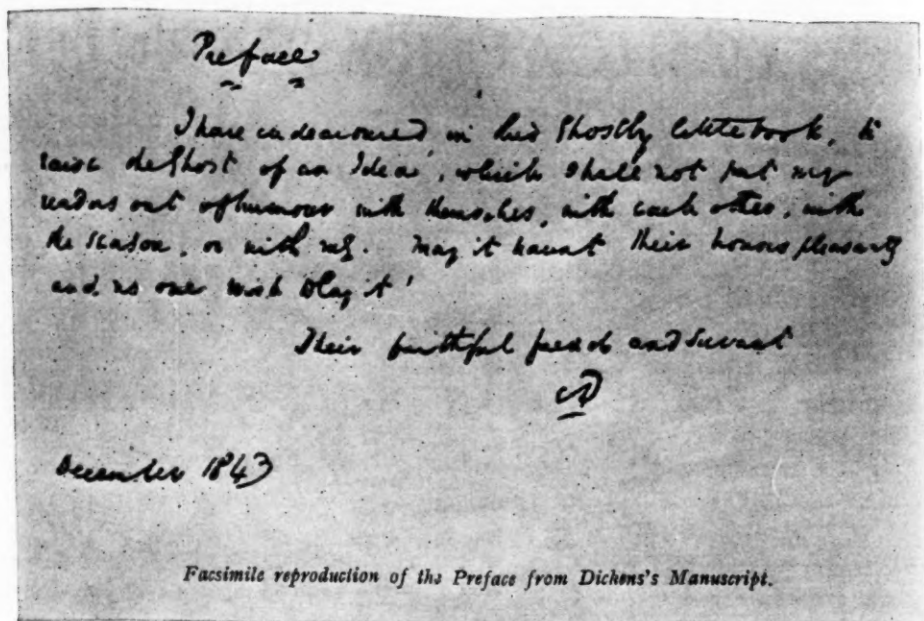 Preface
I have endeavoured in this Ghostly little book, to
raise the Ghost of an Idea, which shall not put my
readers out of humour with themselves, with each other, with
the season, or with me. May it haunt their houses pleasantly
and no one wish to lay it!
Their faithful friend and Servant
CD
December 1843
Facsimile reproduction of the Preface from Dickens's Manuscript.